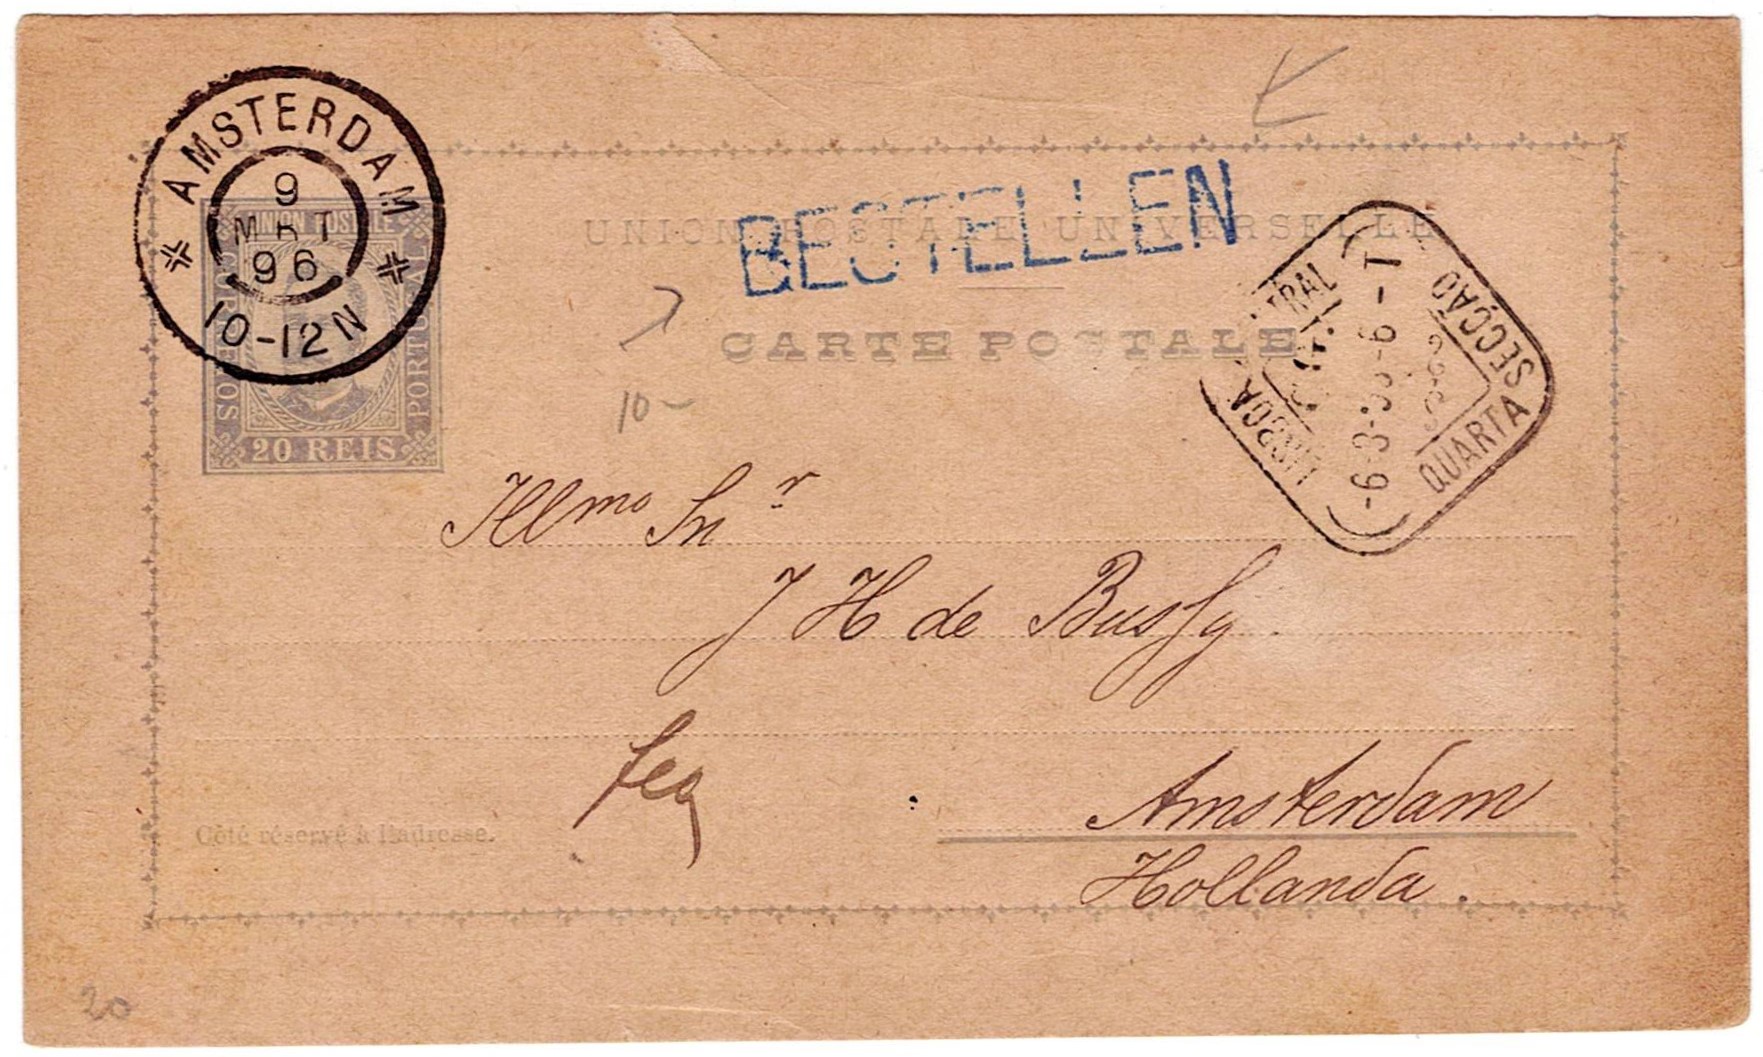 AMSTERDAM
9
MRT
96
10-12N
UNION POSTALE
CORREIOS
PORTUGAL
20 REIS
BESTELLEN
UNION POSTALE UNIVERSELLE
CARTE POSTALE
LISBOA CENTRAL
QUARTA SECÇÃO
10-
Illmo Snr
J H de Bussy
Amsterdam
Hollanda.
Côté réservé à l'adresse.
20